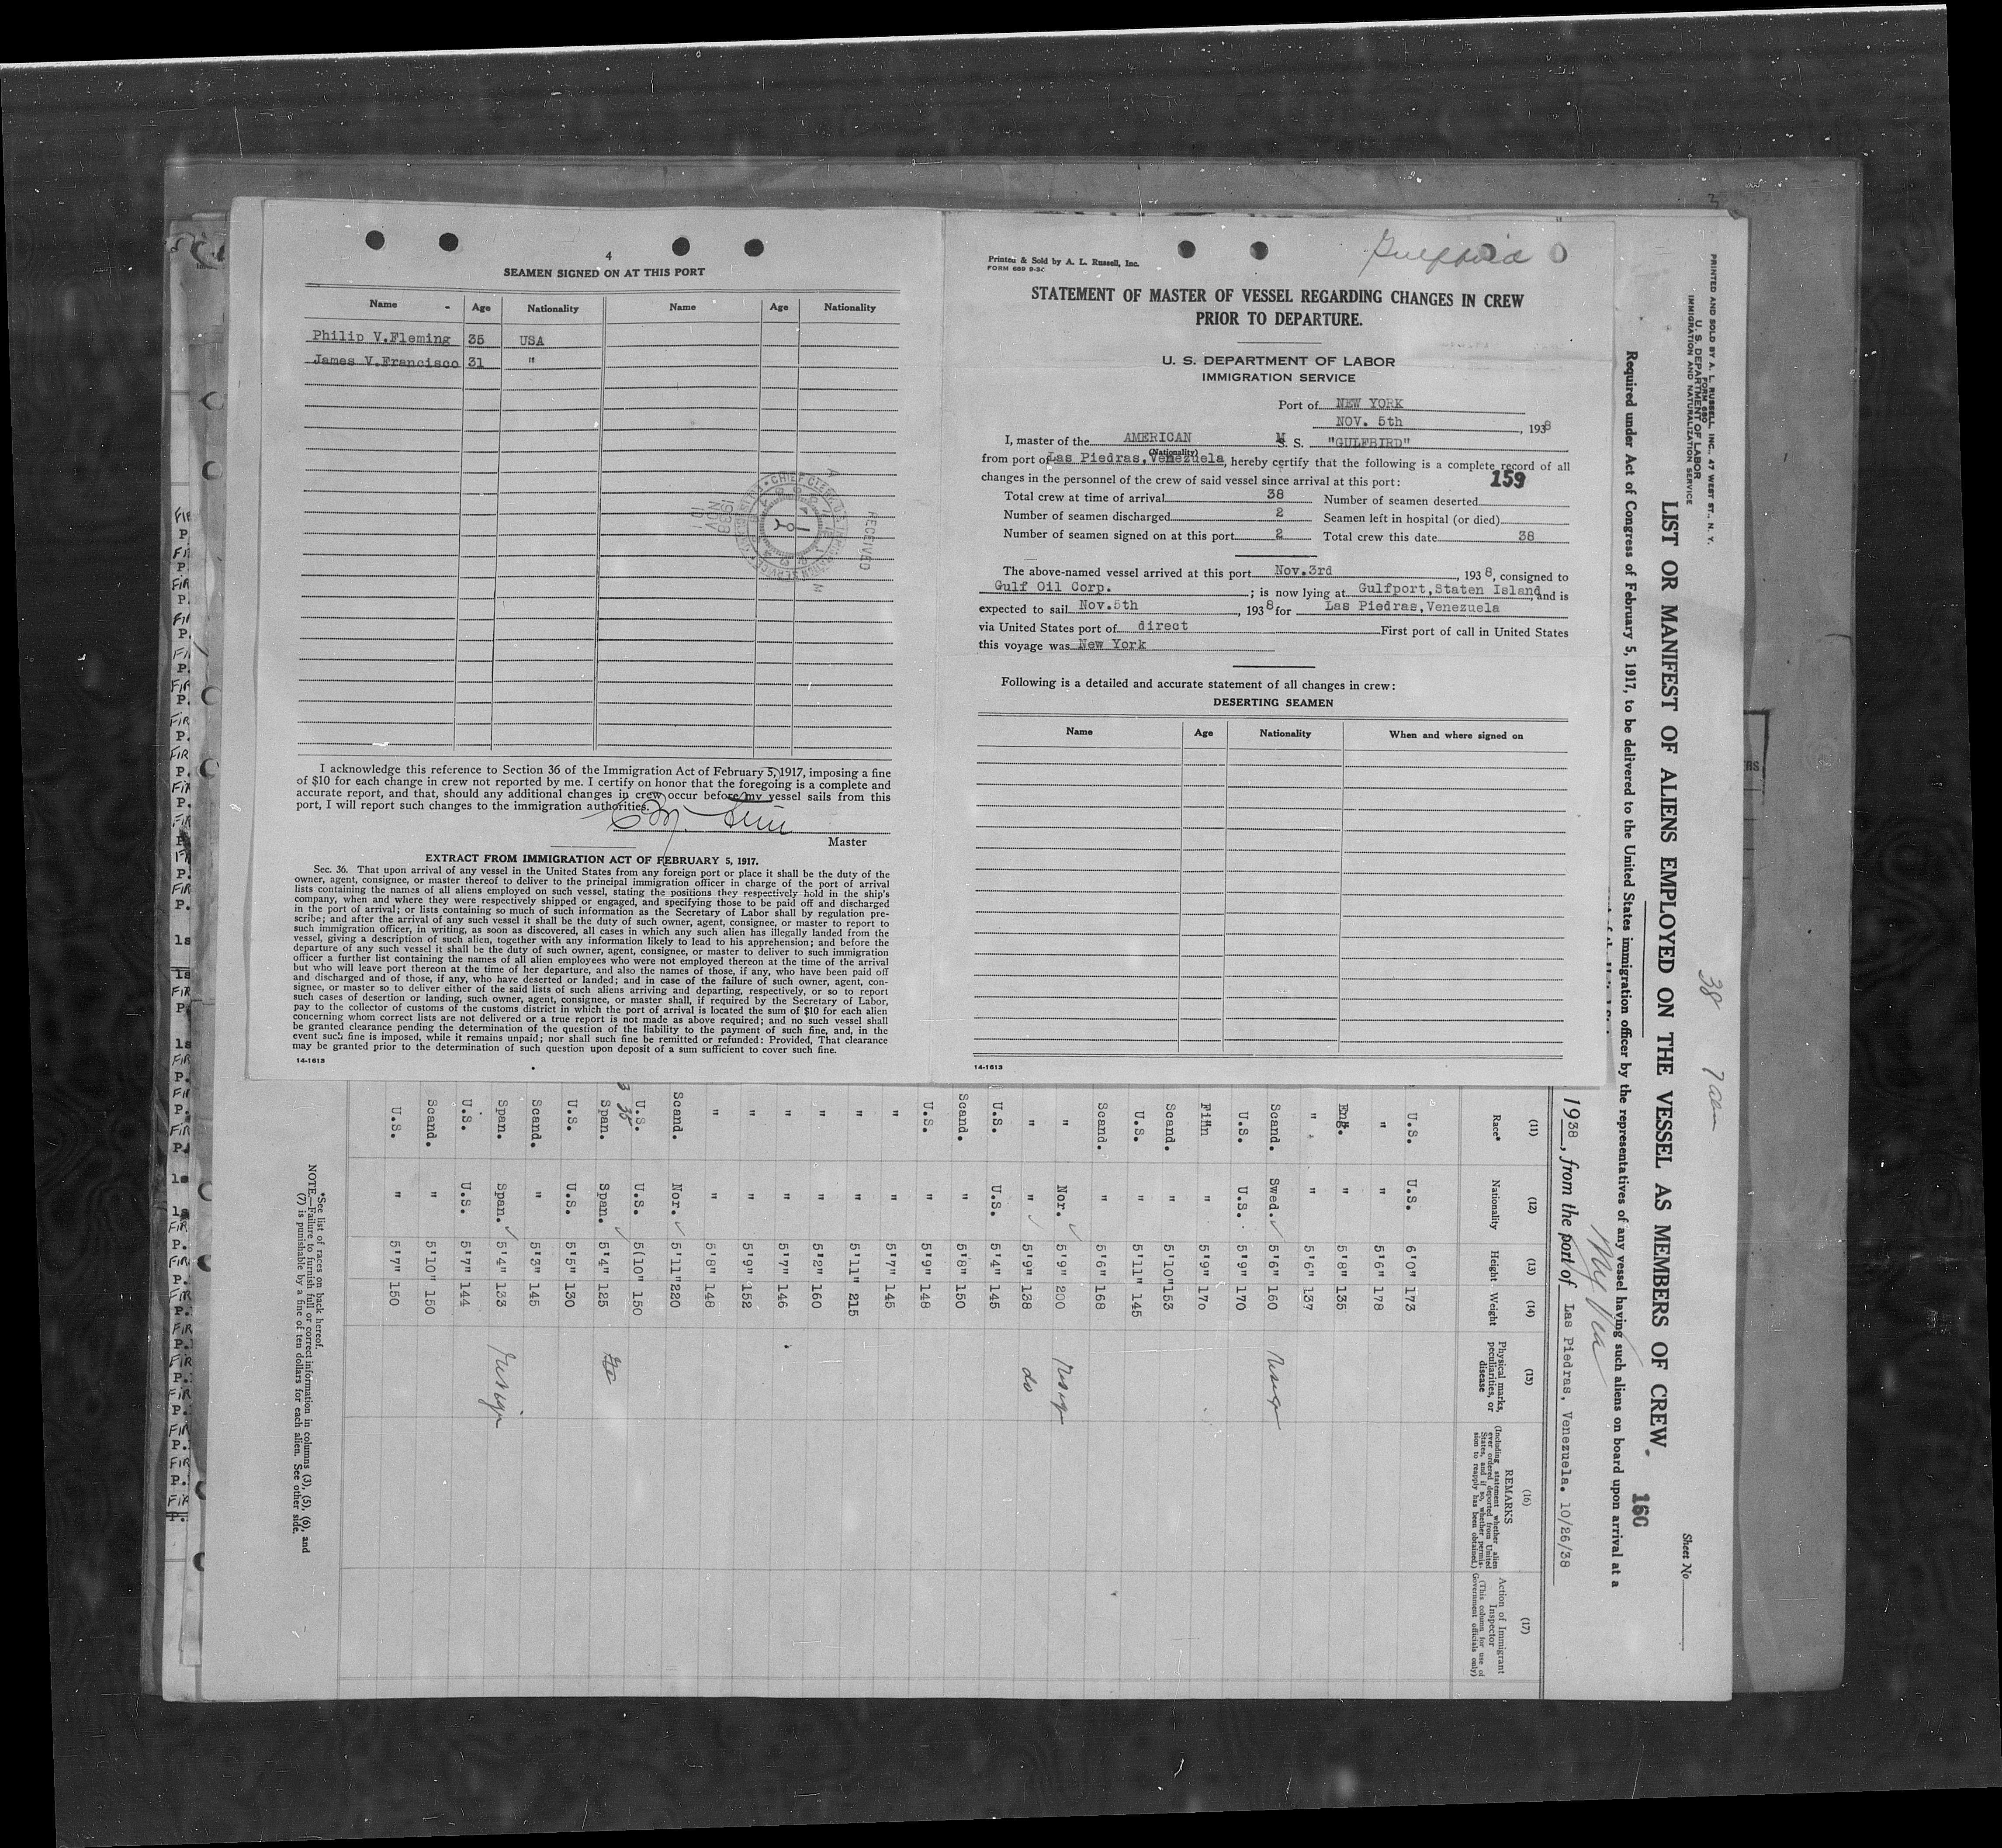 4
SEAMEN SIGNED ON AT THIS PORT
Name Age Nationality Name Age Nationality
Philip V.Fleming 35 USA
James V.Francisco 31 "
RECEIVED
NOV
1938
CHIEF CLERK
I acknowledge this reference to Section 36 of the Immigration Act of February 5, 1917, imposing a fine
of $10 for each change in crew not reported by me. I certify on honor that the foregoing is a complete and
accurate report, and that, should any additional changes in crew occur before my vessel sails from this
port, I will report such changes to the immigration authorities.
Master
EXTRACT FROM IMMIGRATION ACT OF FEBRUARY 5, 1917.
Sec. 36. That upon arrival of any vessel in the United States from any foreign port or place it shall be the duty of the
owner, agent, consignee, or master thereof to deliver to the principal immigration officer in charge of the port of arrival
lists containing the names of all aliens employed on such vessel, stating the positions they respectively hold in the ship's
company, when and where they were respectively shipped or engaged, and specifying those to be paid off and discharged
in the port of arrival; or lists containing so much of such information as the Secretary of Labor shall by regulation pre-
scribe; and after the arrival of any such vessel it shall be the duty of such owner, agent, consignee, or master to report to
such immigration officer, in writing, as soon as discovered, all cases in which any such alien has illegally landed from the
vessel, giving a description of such alien, together with any information likely to lead to his apprehension; and before the
departure of any such vessel it shall be the duty of such owner, agent, consignee, or master to deliver to such immigration
officer a further list containing the names of all alien employees who were not employed thereon at the time of the arrival
but who will leave port thereon at the time of her departure, and also the names of those, if any, who have been paid off
and discharged and of those, if any, who have deserted or landed; and in case of the failure of such owner, agent, con-
signee, or master so to deliver either of the said lists of such aliens arriving and departing, respectively, or so to report
such cases of desertion or landing, such owner, agent, consignee, or master shall, if required by the Secretary of Labor,
pay to the collector of customs of the customs district in which the port of arrival is located the sum of $10 for each alien
concerning whom correct lists are not delivered or a true report is not made as above required; and no such vessel shall
be granted clearance pending the determination of the question of the liability to the payment of such fine, and, in the
event such fine is imposed, while it remains unpaid; nor shall such fine be remitted or refunded: Provided, That clearance
may be granted prior to the determination of such question upon deposit of a sum sufficient to cover such fine.
14-1613
Gulfbird
Printed & Sold by A. L. Russell, Inc.
FORM 689 9-3
STATEMENT OF MASTER OF VESSEL REGARDING CHANGES IN CREW
PRIOR TO DEPARTURE.
U. S. DEPARTMENT OF LABOR
IMMIGRATION SERVICE
Port of NEW YORK
NOV. 5th , 1938
I, master of the AMERICAN M S. S. "GULFBIRD"
(Nationality)
from port of Las Piedras,Venezuela, hereby certify that the following is a complete record of all
changes in the personnel of the crew of said vessel since arrival at this port: 159
Total crew at time of arrival 38 Number of seamen deserted
Number of seamen discharged 2 Seamen left in hospital (or died)
Number of seamen signed on at this port 2 Total crew this date 38
The above-named vessel arrived at this port Nov.3rd , 1938, consigned to
Gulf Oil Corp. ; is now lying at Gulfport,Staten Island and is
expected to sail Nov.5th , 1938 for Las Piedras,Venezuela
via United States port of direct First port of call in United States
this voyage was New York
Following is a detailed and accurate statement of all changes in crew:
DESERTING SEAMEN
Name Age Nationality When and where signed on
14-1613
PRINTED AND SOLD BY A. L. RUSSELL, INC., 47 WEST ST., N. Y.
FORM 680
U. S. DEPARTMENT OF LABOR
IMMIGRATION AND NATURALIZATION SERVICE
Sheet No.
38
LIST OR MANIFEST OF ALIENS EMPLOYED ON THE VESSEL AS MEMBERS OF CREW
160
Required under Act of Congress of February 5, 1917, to be delivered to the United States immigration officer by the representatives of any vessel having such aliens on board upon arrival at a
1938, from the port of Las Piedras, Venezuela. 10/26/38
(11) (12) (13) (14) (15) (16) (17)
Race* Nationality Height Weight Physical marks, peculiarities, or disease REMARKS (Including statement whether alien ever ordered deported from United States, and if so, whether permission to reapply has been obtained.) Action of Immigrant Inspector (This column for use of Government officials only)
U.S. U.S. 6'0" 173
" " 5'6" 178
Eng. " 5'8" 135
" " 5'6" 137
Scand. Swed. 5'6" 160
U.S. U.S. 5'9" 170
Finn " 5'9" 170
Scand. " 5'10" 153
U.S. " 5'11" 145
Scand. " 5'6" 168
" Nor. 5'9" 200
" " 5'9" 138 do
U.S. U.S. 5'4" 145
Scand. " 5'8" 150
U.S. " 5'9" 148
" " 5'7" 145
" " 5'11" 215
" " 5'2" 160
" " 5'7" 146
" " 5'9" 152
" " 5'8" 148
Scand. Nor. 5'11" 220
U.S. U.S. 5'10" 150
Span. Span. 5'4" 125
U.S. U.S. 5'5" 130
Scand. " 5'3" 145
Span. Span. 5'4" 133
U.S. U.S. 5'7" 144
Scand. " 5'10" 150
U.S. " 5'7" 150
*See list of races on back hereof.
NOTE.—Failure to furnish full or correct information in columns (3), (5), (6), and
(7) is punishable by a fine of ten dollars for each alien. See other side.